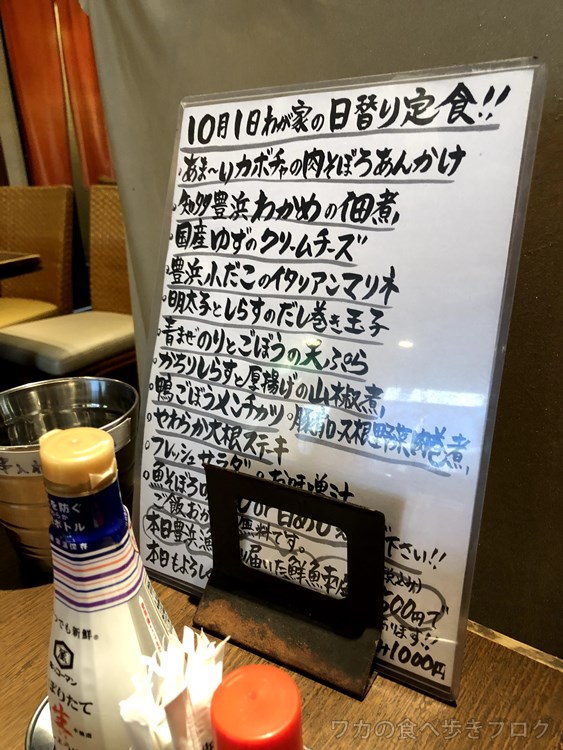 10月1日わが家の日替り定食!!
・あま〜いカボチャの肉そぼろあんかけ
・知多豊浜わかめの佃煮
・国産ゆずのクリームチーズ
・豊浜小だこのイタリアンマリネ
・明太子としらすのだし巻き玉子
・青まぜのりとごぼうの天ぷら
・かちりしらすと厚揚げの山椒煮
・鴨ごぼうメンチカツ ・豚肩ロース根野菜肉巻煮
・やわらか大根ステキ
・フレッシュサラダ ・お味噌汁
・魚そぼろ
下さい!!
ご飯おか
無料です。
本日豊浜漁
届いた鮮魚刺
500円で
あります!!
本日もよろし
1000円
を防ぐ
ボトル
いつでも新鮮
キッコーマン
ぼりたて
生
ワカの食べ歩きブログ